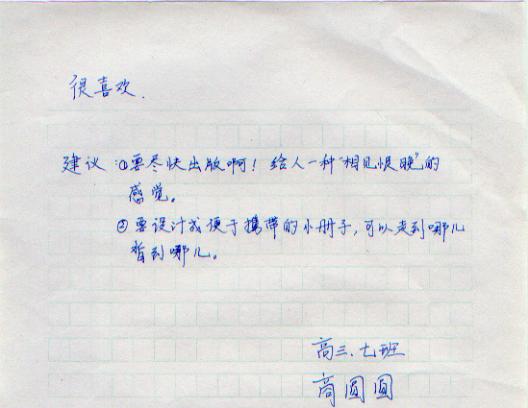 很喜欢.
建议:①要尽快出版啊!给人一种"相见恨晚"的
感觉。
②要设计成便于携带的小册子,可以走到哪儿
看到哪儿。
高三.七班
高圆圆